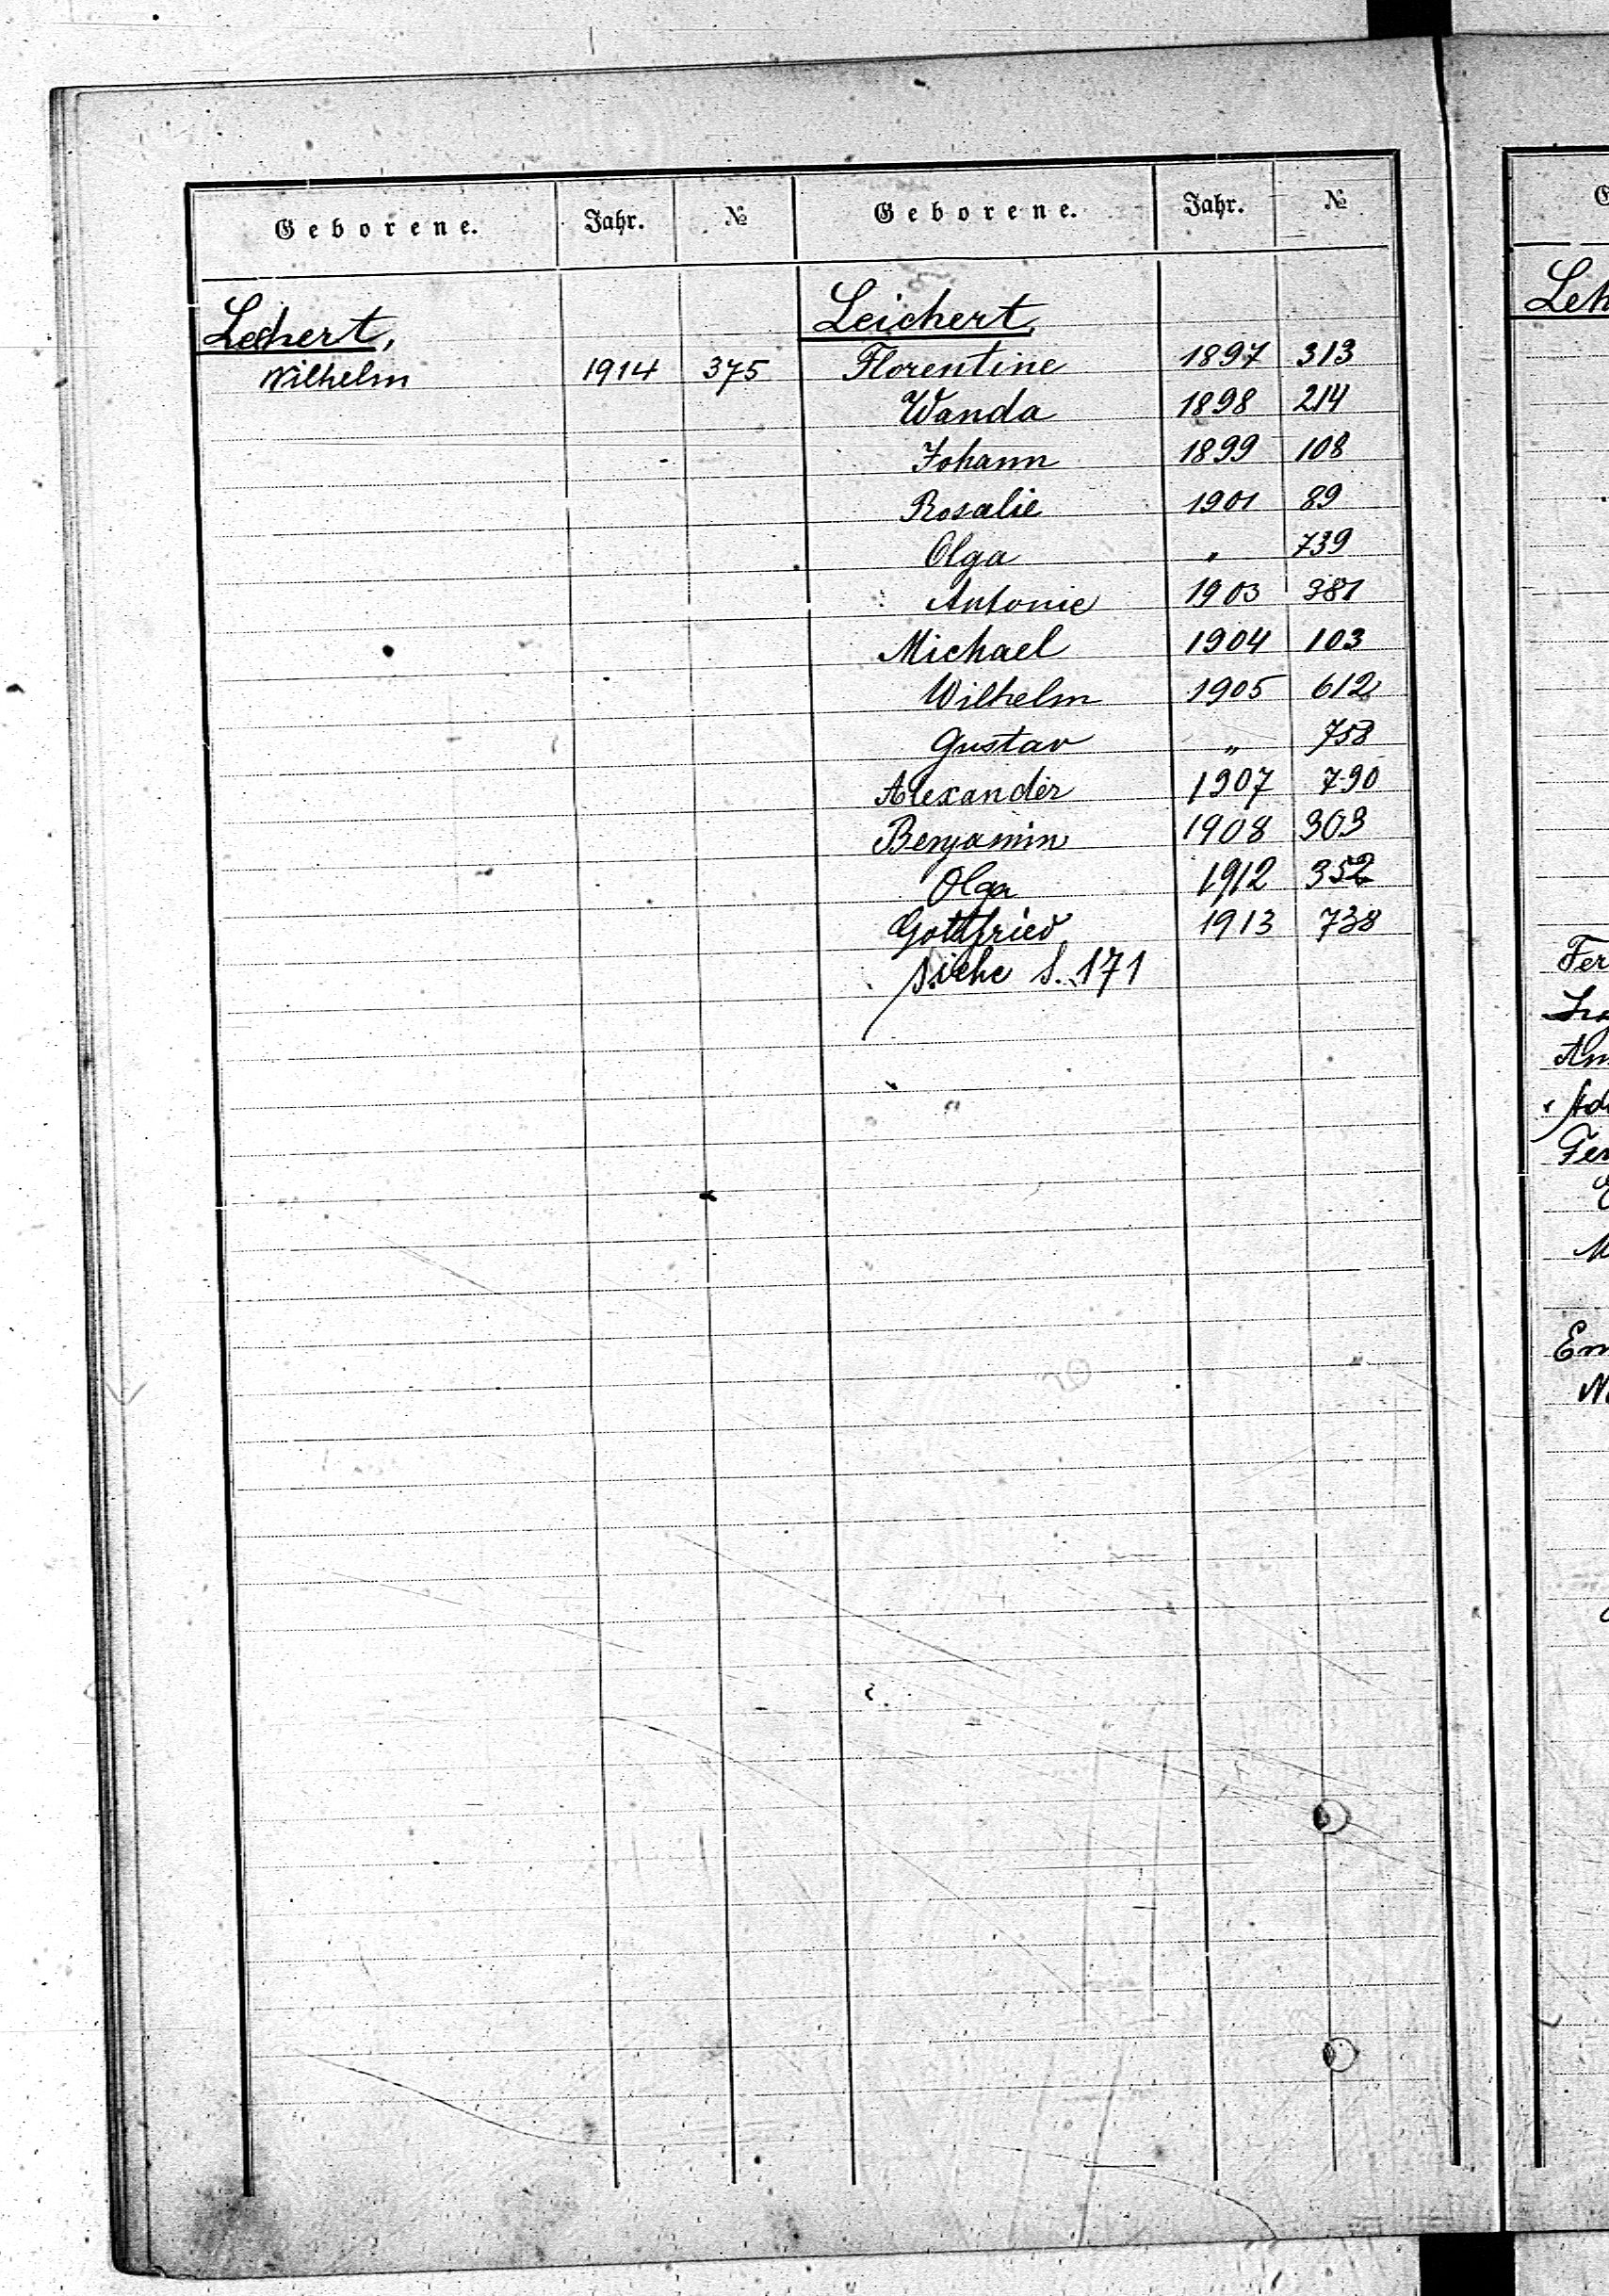 Geborene. Jahr. №
Lechert,
Wilhelm 1914 375
Geborene. Jahr. №
Leichert,
Florentine 1897 313
Wanda 1898 214
Johann 1899 108
Rosalie 1901 89
Olga " 739
Antonie 1903 381
Michael 1904 103
Wilhelm 1905 612
Gustav " 758
Alexander 1907 790
Benjamin 1908 303
Olga 1912 352
Gottfried 1913 738
siehe S. 171
Leh
Fer
Em